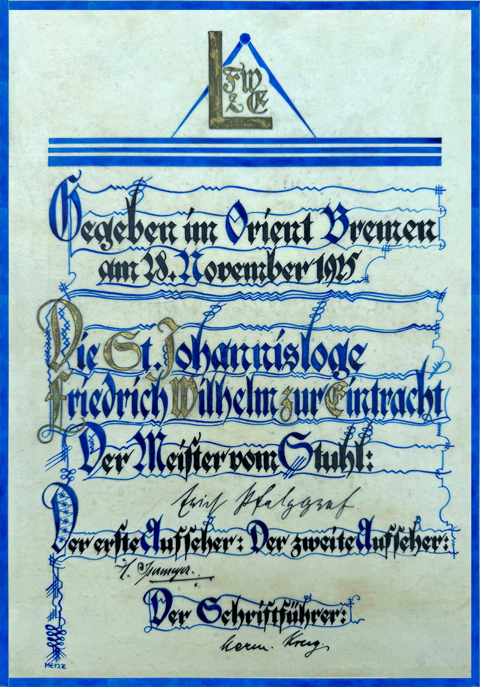 FW
z E
Gegeben im Orient Bremen
am 28. November 1925
Die St. Johannisloge
Friedrich Wilhelm zur Eintracht
Der Meister vom Stuhl:
Erich Pfalzgraf
Der erste Aufseher: Der zweite Aufseher:
H.
Der Schriftführer:
Herm.
METZ